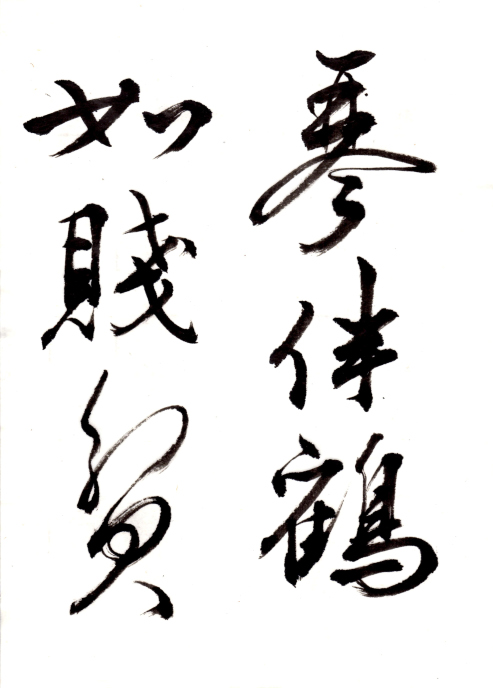 琴伴鶴
如賤貧